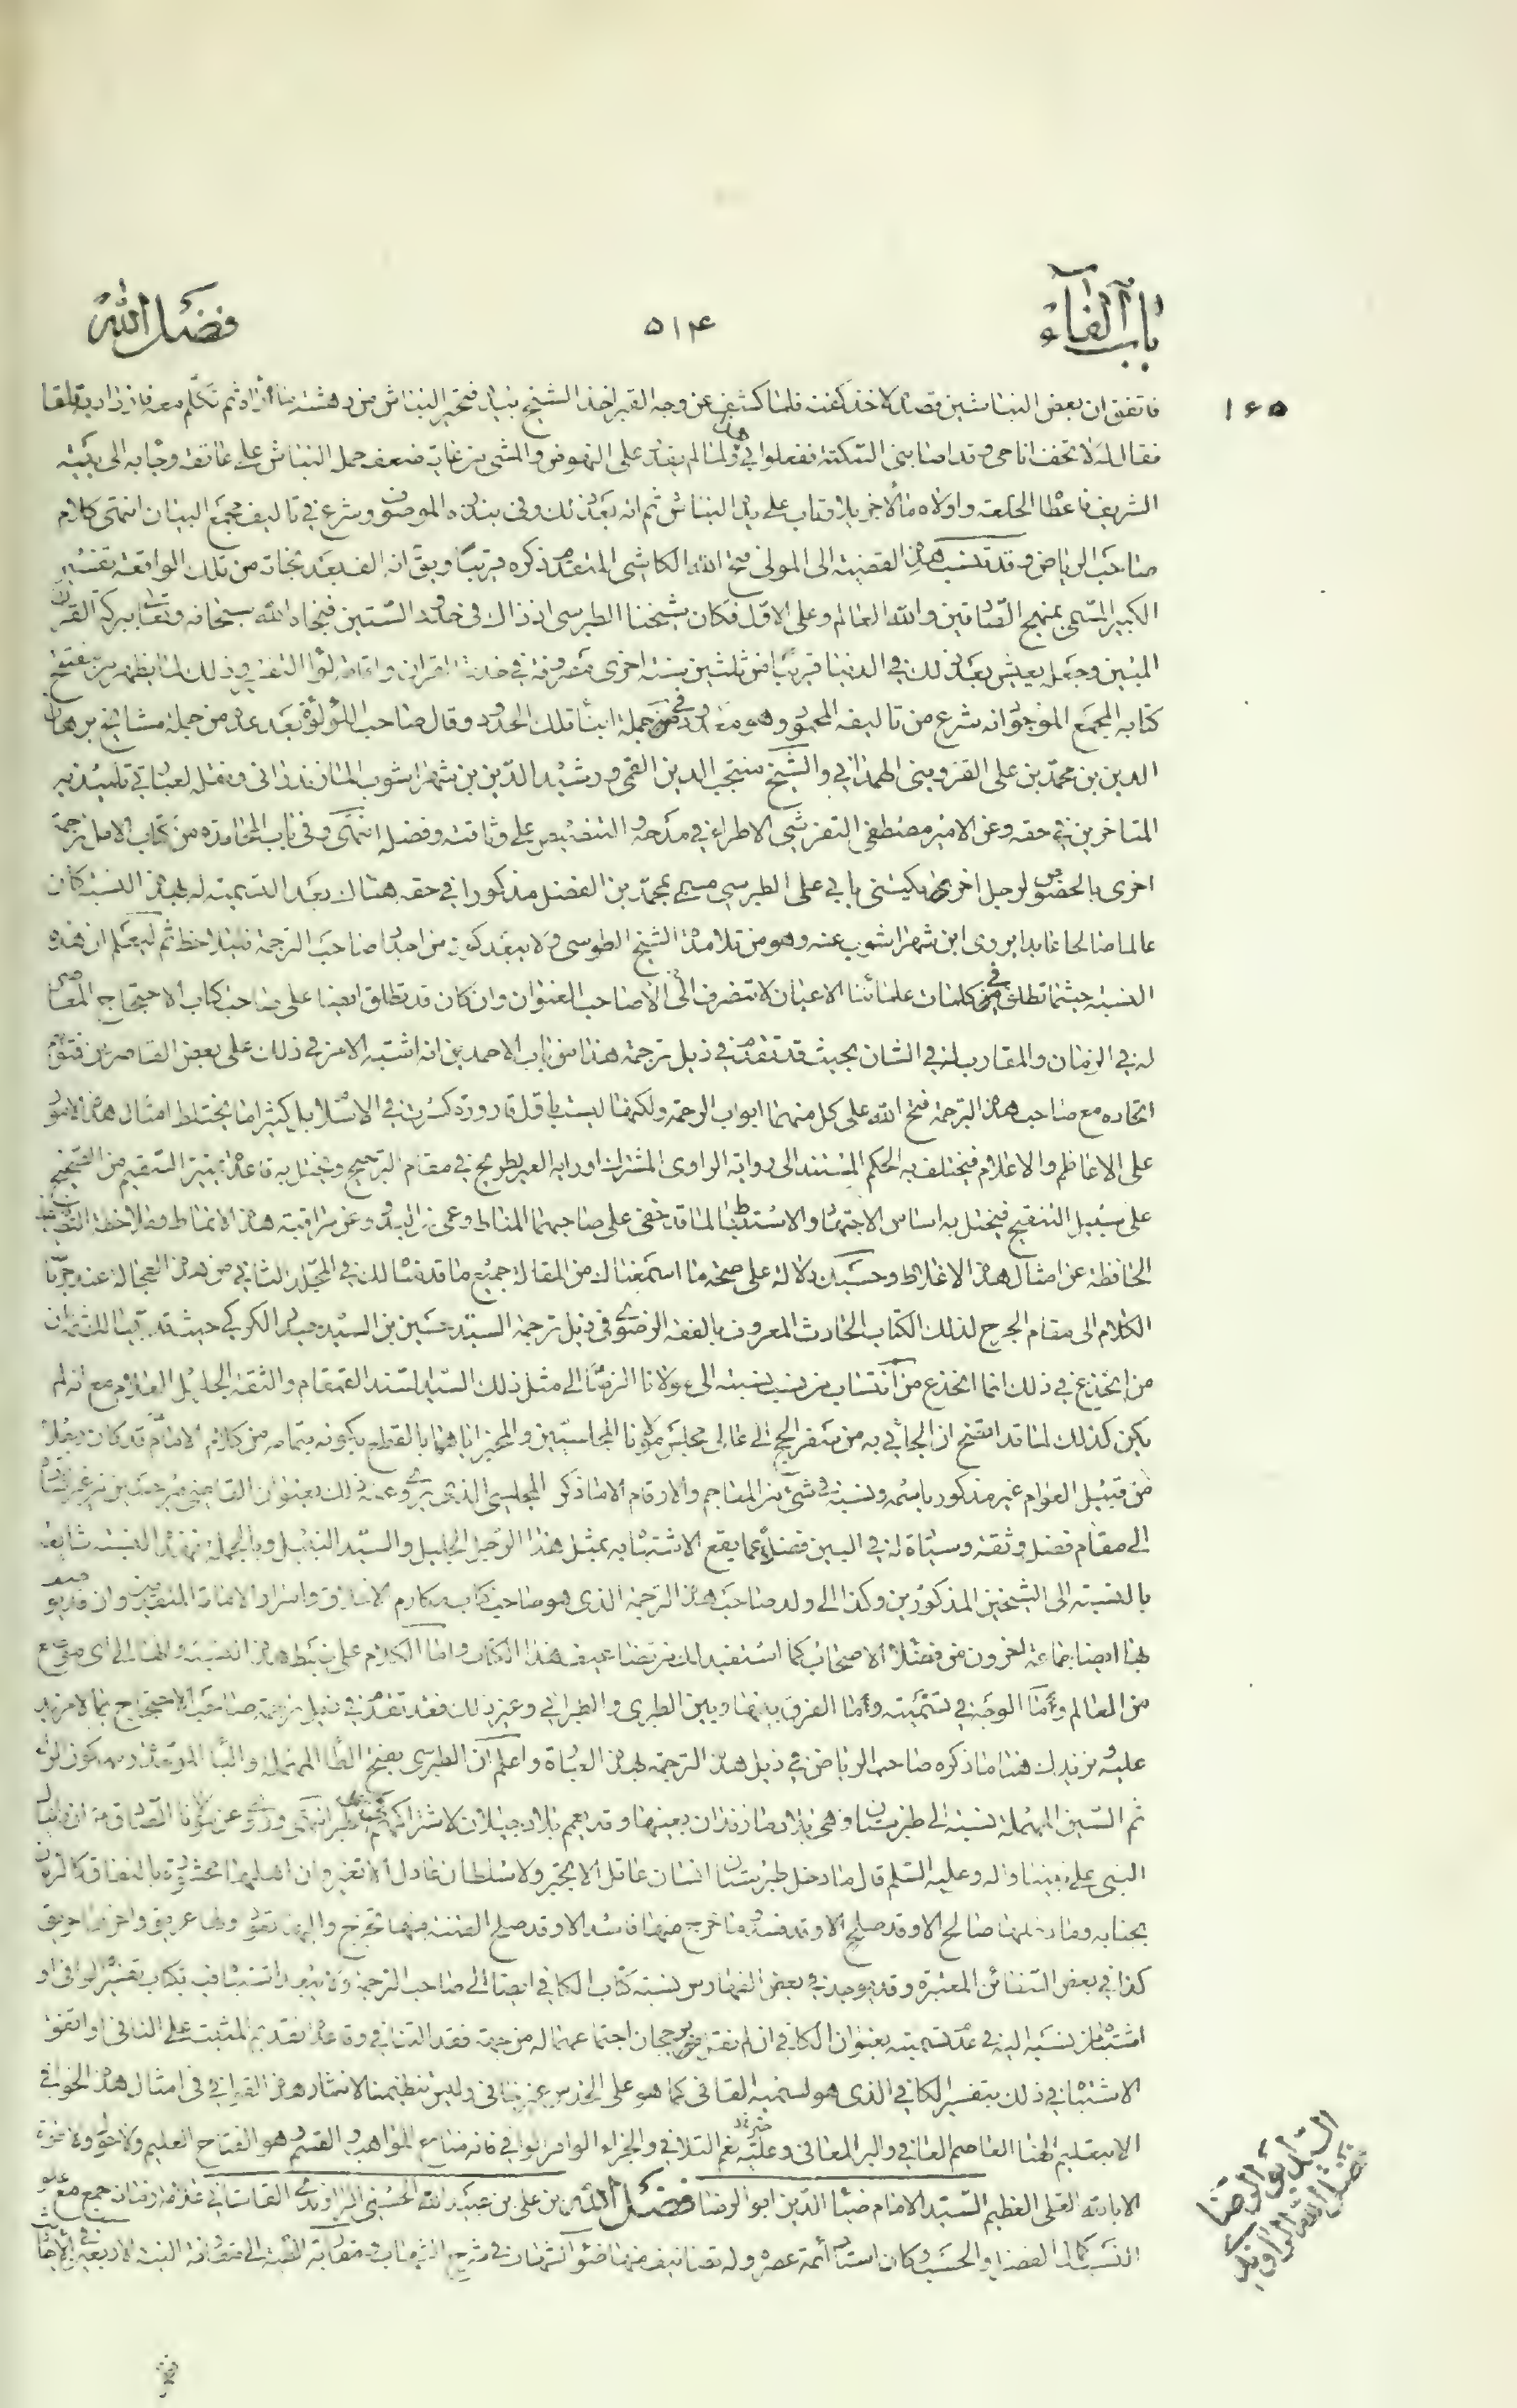 باب الفاء
۵۱۴
فضل الله
۱۶۵
فاتفق ان بعض النباشين قصد لاخذ كفنه فلما كشف عن وجه القبر اخذ الشيخ بيده فتحير النباش من دهشة ما رآه ثم تكلم معه فازداد به قلقا
فقال له لا تخف انا حي وقد اصابني السكتة ففعلوا بي هذا ولما لم يقدر على النهوض والمشي من غاية ضعفه حمله النباش على عاتقه وجاء به الى بيته
الشريف فاعطاه الخلعة واولاه مالا جزيلا وتاب على يده النباش ثم انه بعد ذلك وفى بنذره الموصوف وشرع في تاليف مجمع البيان انتهى كلام
صاحب الرياض وقد تنسب هذه القضية الى المولى فتح الله الكاشي المتقدم ذكره قريبا ويق انه الف بعد نجاته من تلك الواقعة تفسيره
الكبير المسمى بمنهج الصادقين والله العالم وعلى الاول فكان شيخنا الطبرسي اذ ذاك في حدود الستين فنجاه الله سبحانه وتعالى ببركة القرآن
المبين وجعل يعيش بعد ذلك في الدنيا قريبا من ثلثين سنة اخرى معروفة في خدمة القران وذلك لما يظهر من مفتتح
كتابه المجمع الموجود انه شرع من تاليفه المحمود وهو في جملة ابناء تلك الحدود وقال صاحب اللؤلؤة بعد عده من جملة مشايخ برهان
الدين بن محمد بن علي القزويني الهمداني والشيخ منتجب الدين القمي ورشيد الدين بن شهراشوب المازندراني ونقله لعبارتي تلميذيه
المتاخرين في حقه وعن الامير مصطفى التفرشي الاطراء في مدحه والتنصيص على وثاقته وفضله انتهى وفي باب المحامدة من كتاب الامل ترجمة
اخرى بالخصوص لرجل اخر يكنى بابي علي الطبرسي مسمى بمحمد بن الفضل مذكورا في حقه هناك بعد التسمية له بهذه النسبة كان
عالما صالحا عابدا يروي ابن شهراشوب عنه وهو من تلامذة الشيخ الطوسي ولا يبعد كونه من اجداد صاحب الترجمة فليلاحظ ثم ليعلم ان هذه
النسبة حيثما تطلق في كلمات علمائنا الاعيان لا تنصرف الا الى صاحب العنوان وان كان قد تطلق ايضا على صاحب كتاب الاحتجاج المعاصر
له في الزمان والمقارب له في الشان بحيث قد تقدم في ذيل ترجمة هذا من باب الاحمدين انه اشتبه الامر في ذلك على بعض القاصرين فتوهم
اتحاده مع صاحب هذه الترجمة فتح الله على كل منهما ابواب الرحمة ولكنها ليست باول قارورة كسرت في الاسلام بل كثيرا ما يختلط امثال هذه الامور
على الاعاظم والاعلام فيختلف به الحكم المستند الى رواية الراوي المشترك في مقام الترجيح ويختل به قاعدة تمييز السقيم من الصحيح
على سبيل التنقيح فيختل به اساس الاجتهاد والاستنباط لما قد خفي على صاحبهما المناط وعمي عن مراقبة هذه الانماط وملاحظة
الحافظة عن امثال هذه الاغلاط وحسبك دلالة على صحة ما اسمعناك من المقالة جميع ما قدمناه لك في المجلد الثاني من هذه العجالة عند جرنا
الكلام الى مقام الجرح لذلك الكتاب الحادث المعروف بالفقه الرضوي في ذيل ترجمة السيد حسين بن السيد حيدر الكركي حيث قد بينا لك ثمة ان
من انخدع في ذلك انما انخدع من انتساب من ينسب نسبته الى مولانا الرضا الى مثل ذلك السيد السند القمقام والثقة الجليل العلام مع انه لم
يكن كذلك لما قد اتضح ان الجائي به من سفر الحج الى عالي مجلس مولانا المجلسيين والمخبر اياهما بالقطع بكونه بتمامه من كلام الامام قد كان رجلا
من قبيل العوام غير مذكور باسمه ونسبه في شيء من المعاجم والارقام الا ما ذكر المجلسي الذي روى عنه ذلك بعنوان القاضي امير حسين من غير
الى مقام فضل وثقة له في البين فضلا عما يقع الاشتباه بمثل هذا الرجل الجليل والسيد النبيل وبالجملة فهذه النسبة شايعة
بالنسبة الى الشيخين المذكورين وكذا الى ولد صاحب هذه الترجمة الذي هو صاحب كتاب مكارم الاخلاق واسرار الامامة المتقدمين وان قد يوصف
بها ايضا جماعة اخرون من فضلاء الاصحاب كما استفيد لك من تضاعيف هذا الكتاب واما الكلام على ضبط هذه النسبة وانها الى اي موضع
من العالم واما الوجه في تسميته واما الفرق بينها وبين الطبري والطبراني وغير ذلك فقد تقدم في ذيل ترجمة صاحب الاحتجاج بما لا مزيد
عليه ونزيدك هنا ما ذكره صاحب الرياض في ذيل هذه الترجمة بهذه العبارة واعلم ان الطبرسي بفتح الطاء المهملة والباء الموحدة وسكون الراء
ثم السين المهملة نسبة الى طبرستان وهي بلاد مازندران بعينها وقد يعم بلاد جيلان لاشتراكهم انتهى وروى عن مولانا الصادق
النبي على نبينا واله وعليه السلم قال ما دخل طبرستان انسان عاقل الا تحير ولا سلطان عادل الا تغير وان اهلها محشوة بالنفاق كالرمان
بحبابه وما دخلها صالح الا وقد فسد وما خرج منها فاسد الا وقد صلح الفتنة منها تخرج واليها تعود
كذا في بعض السفائن المعتبرة وقد يوجد في بعض الفهارس نسبة كتاب الكافي ايضا الى صاحب الترجمة ولا يبعد اشتباهه بكتاب تفسيره الوافي او
اشتباه من نسبه اليه في عدم تسميته بعنوان الكافي ان لم نقل برجحان اجتماعهما له من جهة فقد التنافي وقاعدة تقديم المثبت على النافي او اتفق
الاشتباه في ذلك بتفسير الكافي الذي هو لسميه القاضي كما هو على الحدس غير خافي وليس تنظيمنا لامثال هذه القوافي في امثال هذه الخوافي
الا بتعليم الهنا العاصم العافي والبر المعافي وعليه نعم التلافي والجزاء الوافر الوافي فانه صانع المواهب والقسم وهو الفتاح العليم ولا حول ولا قوة
الا بالله العلي العظيم السيد الامام ضياء الدين ابو الرضا فضل الله بن علي بن عبيد الله الحسني الراوندي القاساني علامة زمانه جمع مع علو
النسب كمال الفضل والحسب وكان استاد ائمة عصره وله تصانيف منها ضوء الشهاب في شرح الشهاب مقاربة الطية الى مقارنة النية الاربعين في الاحاديث
السيد ابو الرضا
فضل الله الراوندي